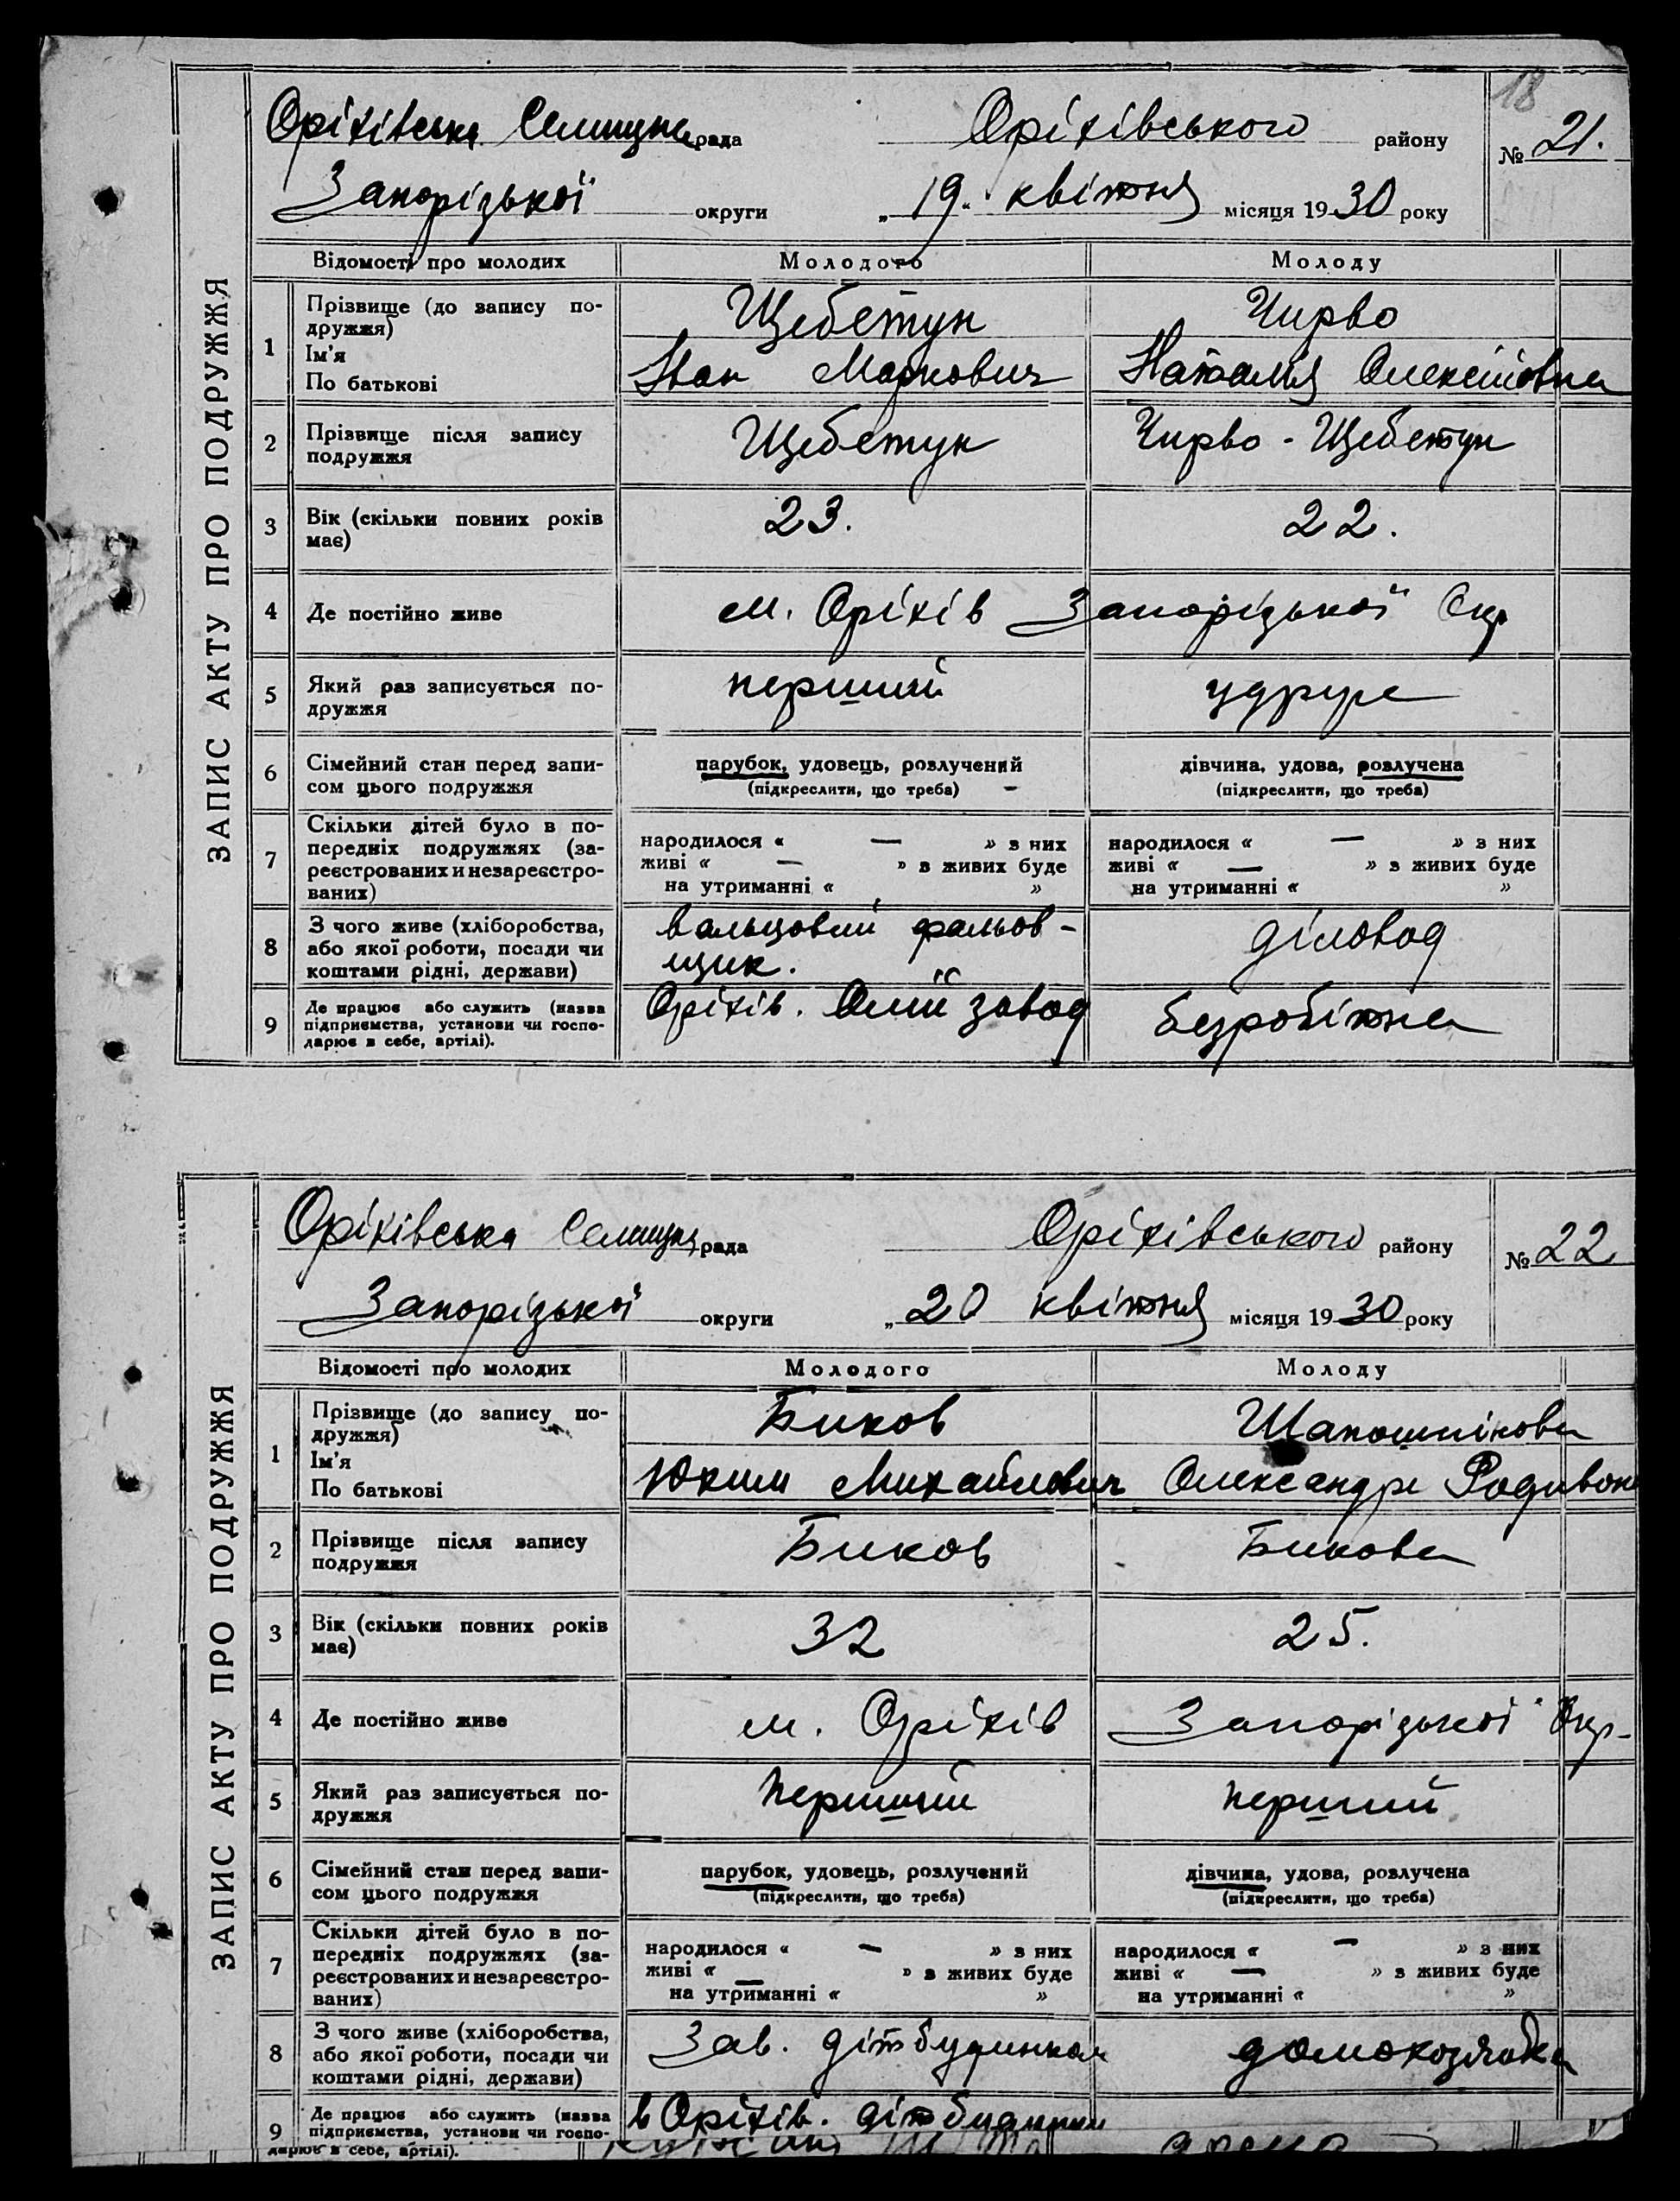 18
Оріхівська Селищна рада Оріхівського району № 21.
Запорізької округи „19" квітня місяця 1930 року
ЗАПИС АКТУ ПРО ПОДРУЖЖЯ
Відомості про молодих Молодого Молоду
1 Прізвище (до запису по-
дружжя) Щебетун Чирво
Ім'я
По батькові Іван Маркович Наталія Олексіївна
2 Прізвище після запису
подружжя Щебетун Чирво - Щебетун
3 Вік (скільки повних років
має) 23. 22.
4 Де постійно живе м. Оріхів Запорізької Окр
5 Який раз записується по-
дружжя перший удруге
6 Сімейний стан перед запи-
сом цього подружжя парубок, удовець, розлучений дівчина, удова, розлучена
(підкреслити, що треба) (підкреслити, що треба)
7 Скільки дітей було в по-
передніх подружжях (за-
реєстрованих и незареєстро-
ваних)
народилося « — » з них народилося « — » з них
живі « — » з живих буде живі « — » з живих буде
на утриманні « » на утриманні « »
8 З чого живе (хліборобства,
або якої роботи, посади чи
коштами рідні, держави)
вальцовий фальов-
щик. діловод
9 Де працює або служить (назва
підприємства, установи чи госпо-
дарює в себе, артілі).
Оріхів. Олії завод безробітна
Оріхівська Селищна рада Оріхівського району № 22
Запорізької округи „20 квітня місяця 1930 року
ЗАПИС АКТУ ПРО ПОДРУЖЖЯ
Відомості про молодих Молодого Молоду
1 Прізвище (до запису по-
дружжя) Биков Шапошнікова
Ім'я
По батькові Юхим Михайлович Олександра Родивон
2 Прізвище після запису
подружжя Биков Бикова
3 Вік (скільки повних років
має) 32 25.
4 Де постійно живе м. Оріхів Запорізької Окр-
5 Який раз записується по-
дружжя перший перший
6 Сімейний стан перед запи-
сом цього подружжя парубок, удовець, розлучений дівчина, удова, розлучена
(підкреслити, що треба) (підкреслити, що треба)
7 Скільки дітей було в по-
передніх подружжях (за-
реєстрованих и незареєстро-
ваних)
народилося « — » з них народилося « — » з них
живі « — » з живих буде живі « — » з живих буде
на утриманні « » на утриманні « »
8 З чого живе (хліборобства,
або якої роботи, посади чи
коштами рідні, держави)
Зав. дітбудинком домохозяйка
9 Де працює або служить (назва
підприємства, установи чи госпо-
в Оріхів. дітбудинки
дарює в себе, артілі).